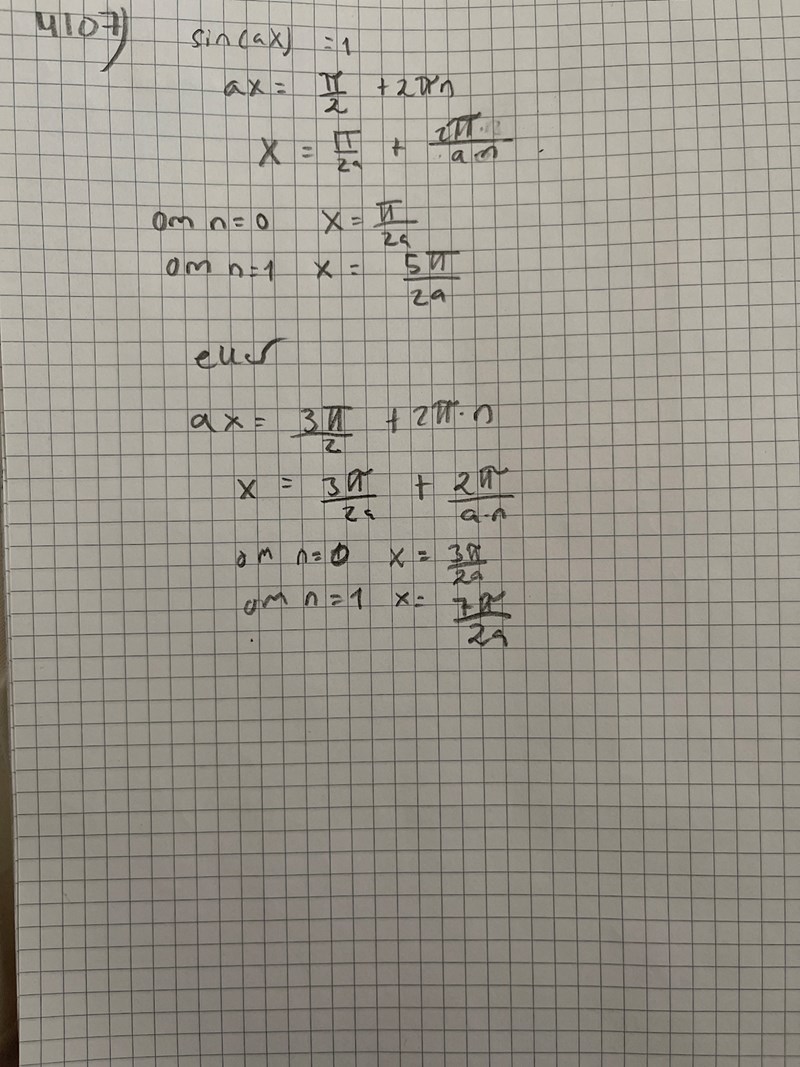 4107)
sin(ax) = 1
ax = π/2 + 2πn
x = π/2a + 2π/a·n
om n=0 x = π/2a
om n=1 x = 5π/2a
eller
ax = 3π/2 + 2π·n
x = 3π/2a + 2π/a·n
om n=0 x = 3π/2a
om n=1 x = 7π/2a